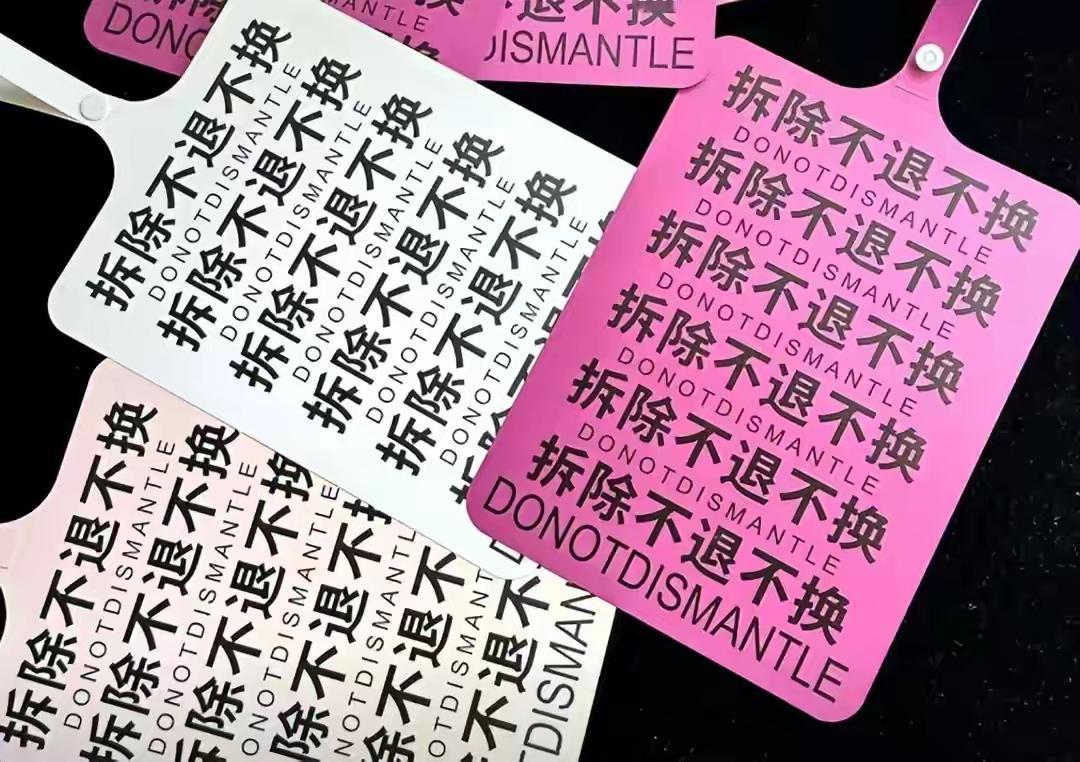 MANTLE
DONO
退不换
ISMANTLE
拆除不退不换
DONOTDISMANTLE
拆除不退不换
DONOTDISMANTLE
拆除不退不换
DONOTDISMANTLE
拆除不退不换
DONOTDISMANTLE
拆除不退不换
DONOTDISMANTLE
拆除不退不换
DONOTDISMANTLE
拆除不退不换
DONOTDISMANTLE
拆除不退不换
DONOTDISMANTLE
拆除不退不换
DONOTDISMANTLE
拆除不退不换
DONOTDISMANTLE
拆除不退不换
DONOTDISMANTLE
拆除不退不换
DONOTDISMANTLE
拆除不退不换
DONOTDISMANTLE
拆除不退不换
ONOTDISMANTLE
拆除不退
NOTDISMANTL
除不退不
OTDISMANT
不退不
TDISMAN